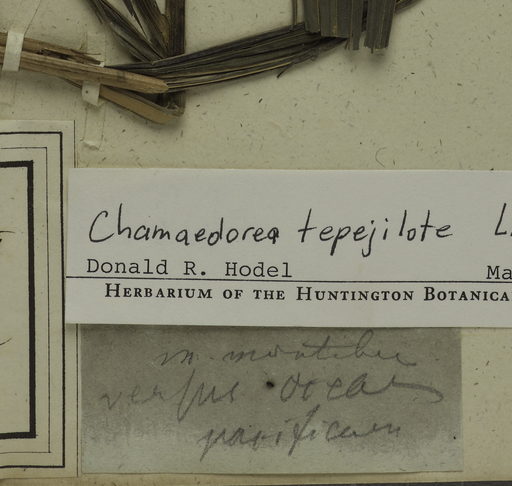 Chamaedorea tepejilote L
Donald R. Hodel Ma
HERBARIUM OF THE HUNTINGTON BOTANICA
in montibus
versus ocean
pacificum